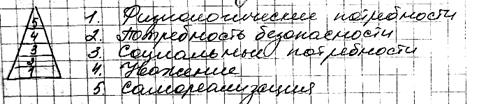 5
4
3
2
1
1. Физиологические потребности
2. Потребность безопасности
3. Социальные потребности
4. Уважение
5. Самореализация